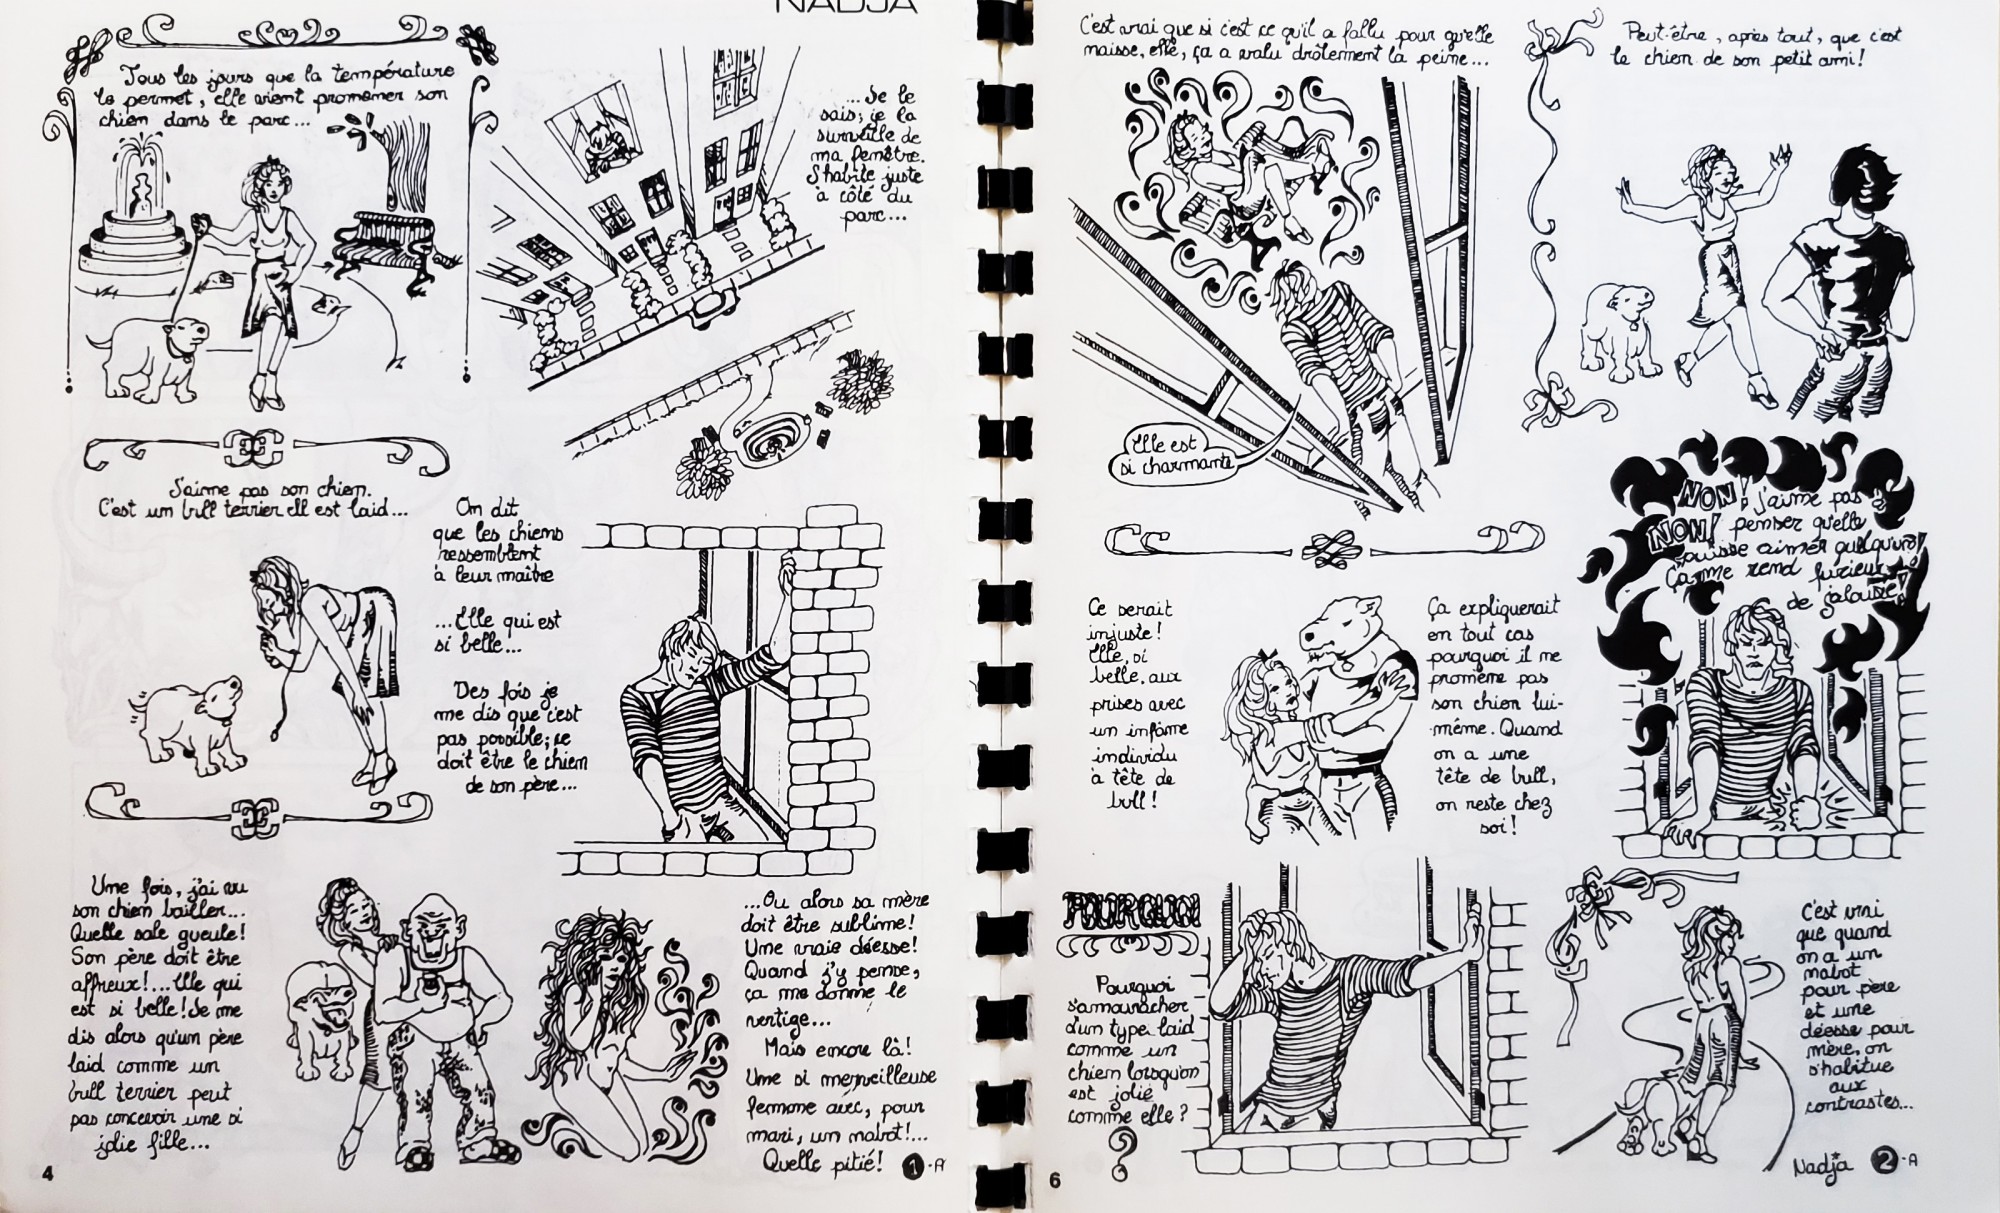 NADJA
Tous les jours que la température
le permet, elle vient promener son
chien dans le parc...
...Je le
sais; je la
surveille de
ma fenêtre.
J'habite juste
à côté du
parc...
J'aime pas son chien.
C'est un bull terrier ell est laid...
On dit
que les chiens
ressemblent
à leur maître
...Elle qui est
si belle...
Des fois je
me dis que c'est
pas possible; ce
doit être le chien
de son père...
Une fois, j'ai vu
son chien bailler...
Quelle sale gueule!
Son père doit être
affreux!...Elle qui
est si belle! Je me
dis alors qu'un père
laid comme un
bull terrier peut
pas concevoir une si
jolie fille...
...Ou alors sa mère
doit être sublime!
Une vraie déesse!
Quand j'y pense,
ça me donne le
vertige...
Mais encore là!
Une si merveilleuse
femme avec, pour
mari, un nabot!...
Quelle pitié!
1-A
4
C'est vrai que si c'est ce qu'il a fallu pour qu'elle
naisse, elle, ça a valu drôlement la peine...
Elle est
si charmante
Peut-être, après tout, que c'est
le chien de son petit ami!
Ce serait
injuste!
Elle, si
belle, aux
prises avec
un infâme
individu
à tête de
bull!
Ça expliquerait
en tout cas
pourquoi il me
promène pas
son chien lui-
même. Quand
on a une
tête de bull,
on reste chez
soi!
NON! j'aime pas
NON! penser qu'elle
puisse aimer quelqu'un!
Ça me rend furieux
de jalousie!
POURQUOI
Pourquoi
s'amouracher
d'un type laid
comme un
chien lorsqu'on
est jolie
comme elle?
?
C'est vrai
que quand
on a un
nabot
pour père
et une
déesse pour
mère, on
s'habitue
aux
contrastes...
Nadja 2-A
6